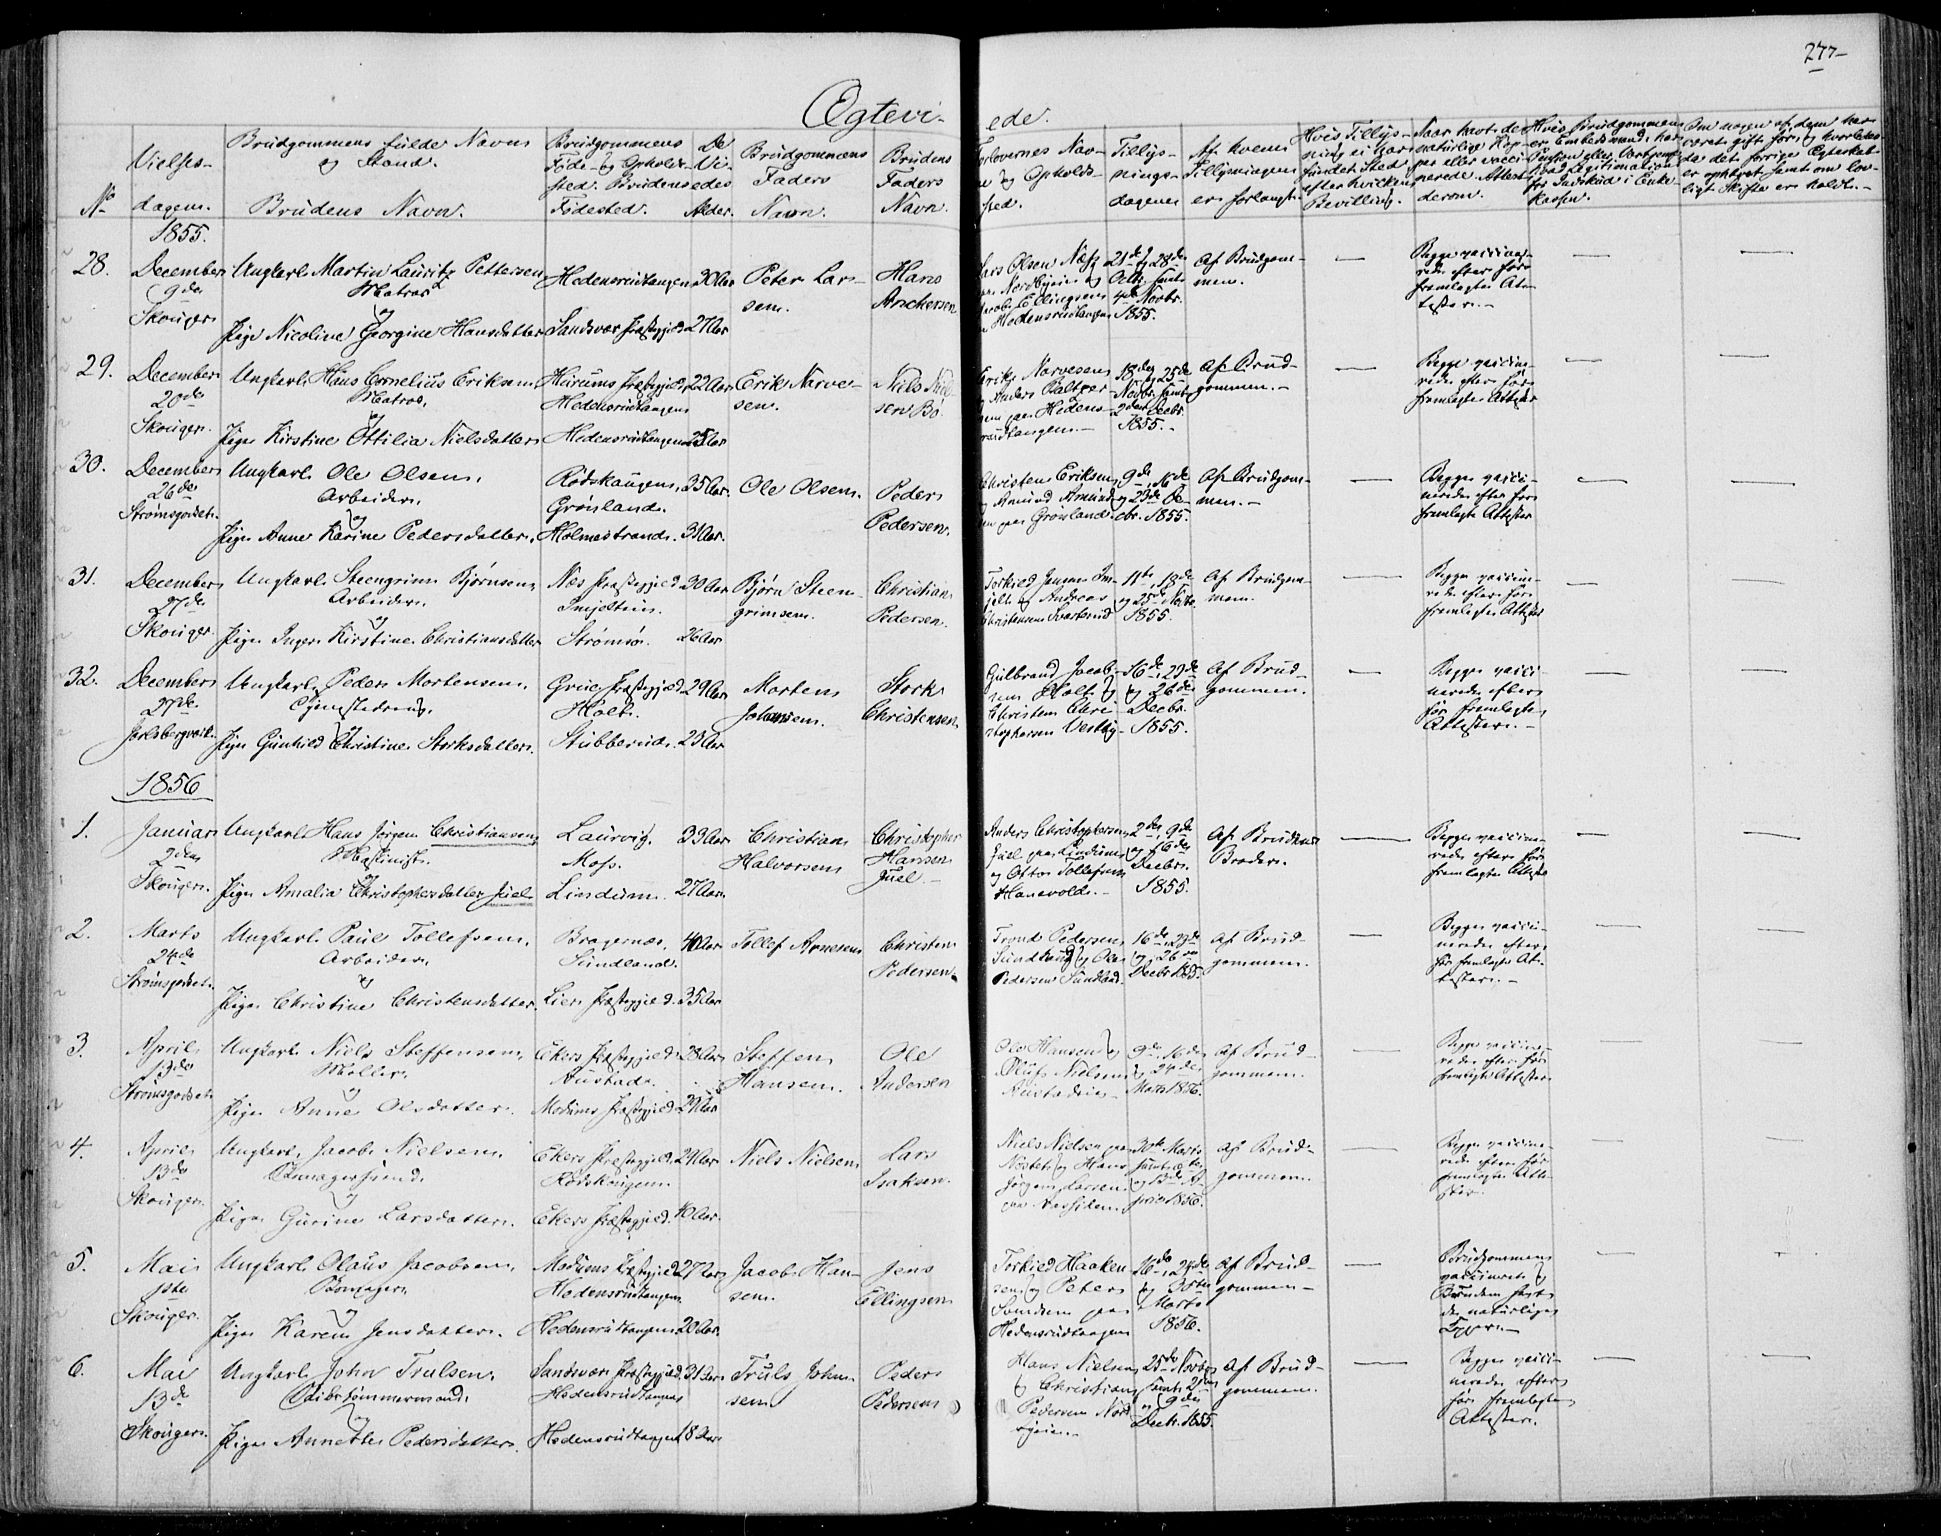 277-
Ægtevi- ede.
No
Vielses-
dagen.
Brudgommens fulde Navn
og Stand.
Brudens Navn.
Brudgommens
Føde- og Opholds-
sted. Brudens
Fødested.
De
Vi-
edes
Alder.
Brudgommens
Faders
Navn.
Brudens
Faders
Navn.
Forlovernes Nav-
ne og Opholds-
sted.
Tillys-
nings-
dagene
Af hvem
Tillysningen
er forlangt.
1855.
28.
December
9de
Skouger.
Ungkarl Martin Lauritz Pettersen
Matros
og
Pige Nicoline Georgine Hansdatter
Hedensrudtangen
Sandsvær Præstegjeld
30 Aar
27 Aar
Peter Lar-
sen.
Hans
Anchersen
Lars Olsen Næss
paa Nordbyeien og
Jacob Ellingsen
paa Hedensrudtangen
21de og 28de
Octbr. samt
4de Novbr.
1855.
Af Brudgom-
men.
Begge vaccine-
rede efter före
fremlagte At-
tester.
29.
December
20de
Skouger.
Ungkarl Hans Cornelius Eriksen,
Matros,
og
Pige Kirstine Ottilia Nielsdatter
Heirums Præstegjeld
Hedensrudtangen
Hedensrudtangen
22 Aar
25 Aar
Erik Narve-
sen.
Niels Niel-
sen Bö
Erik Narvesen
og Anders Baltzer-
sen paa Hedens-
rudtangen.
18de og 25de
Novbr. samt
2den Decbr.
1855.
Af Brud-
gommen.
Begge vaccine-
rede efter före
fremlagte Attester
30.
December
26de
Strømsgodset.
Ungkarl Ole Olsen,
Arbeider,
og
Pige Anne Karine Pedersdatter,
Rødskougen,
Grønland.
Holmestrand.
35 Aar.
31 Aar.
Ole Olsen.
Peder
Pedersen.
Christen Eriksen
og Amund Amund-
sen paa Grønland
9de, 16de
og 23de De-
cbr. 1855.
Af Brudgom-
men.
Begge vacci-
nerede efter före
fremlagte Attester
31.
December
27de
Skouger.
Ungkarl Steengrim Bjørnsen,
Arbeider,
og
Pige Inger Kirstine Christiansdatter
Næs Præstegjeld
Smjeltein.
Strømsø.
30 Aar
26 Aar
Bjørn Steen-
grimsen.
Christian
Pedersen.
Torkild Jensen
og Andreas
Christensen
11te, 18de
og 25de Novbr.
1855.
Af Brudgom-
men.
Begge vaccine-
rede efter före
fremlagte Attester
32.
December
27de.
Jarlsbergværk.
Ungkarl Peder Mortensen,
og
Pige Gunhild Christine Storksdatter.
Grue Præstegjeld
Holt.
Stubberud.
29 Aar
23 Aar
Morten
Johansen.
Stork
Christensen
Gulbrand Jacob-
sen Holt og
Christen Chri-
stophersen Vestby
16de, 23de
og 26de
Decbr.
1855.
Af Brud-
gommen.
Begge vacci-
nerede efter
före fremlagte
Attester.
1856
1.
Januar
2den
Skouger.
Ungkarl Hans Jørgen Christiansen,
Maskinist.
og
Pige Amalia Christophersdatter Juel
Laurvig.
Moss.
Lindum.
33 Aar
27 Aar.
Christian
Halvorsen
Christopher
Hansen
Juel
Anders Christophersen
Juel paa Lindum
og Otto Tollefsen
Hanevold.
2den, 9de
og 16de
Decbr.
1855.
Af Brudens
Broder.
Begge vaccine-
rede efter före
fremlagte Attester
2.
Marts
24de
Strømsgodset.
Ungkarl Paul Tollefsen,
Arbeider,
og
Pige Christine Christensdatter.
Bragernæs,
Sundland.
Lier Præstegjeld.
40 Aar
35 Aar.
Tollef Arnesen
Christen
Pedersen.
Trond Pedersen
Sundhaug og Ole
Pedersen Sundland.
16de, 23de
og 26de
Decbr. 1855.
Af Brud-
gommen.
Begge vacci-
nerede efter
före fremlagte At-
tester.
3.
April
13de
Strømsgodset.
Ungkarl Niels Steffensen,
Møller,
og
Pige Anne Olsdatter.
Ekers Præstegjeld
Austad.
Modums Præstegjeld
28 Aar
29 Aar
Steffen
Hansen.
Ole
Andersen
Ole Hansen og
Oluf Nielsen
9de, 16de
og 24de
Marts 1856.
Af Brud-
gommen.
Begge vaccine-
rede efter före
fremlagte Attester
4.
April
13de
Skouger.
Ungkarl Jacob Nielsen,
og
Pige Gurine Larsdatter.
Ekers Præstegjeld.
Rødskougen.
Ekers Præstegjeld.
29 Aar
40 Aar.
Niels Nielsen
Lars
Isaksen.
Niels Nielsen paa
Nøstet og Hans
Jørgen Larsen
30te Marts
samt
og 13de A-
pril 1856.
Af Brud-
gommen.
Begge vaccine-
rede efter före
fremlagte Atte-
ster.
5.
Mai
1ste
Skouger.
Ungkarl Olaus Jacobsen
og
Pige Karen Jensdatter.
Modums Præstegjeld
Hedensrudtangen
Hedensrudtangen
27 Aar
20 Aar.
Jacob Han-
sen.
Jens
Ellingsen
Torkild Haaken-
sen og Peter
Svendsen paa
Hedensrudtangen
16de, 24de
og 30te
Marts
1856.
Af Brud-
gommen
Brudgommen
vaccineret og
Bruden havt
de naturlige
Kopper.
6.
Mai
13de
Skouger.
Ungkarl John Trulsen,
Skibstømmermand,
og
Pige Annette Pedersdatter.
Sandsvær Præstegjeld.
Hedensrudtangen
Hedensrudtangen
31 Aar
18 Aar
Truls John-
sen
Peder
Pedersen
Hans Nielsen
og Christian
Pedersen Nord-
byeien.
25de Novbr.
samt 2den
og 9de
Decbr. 1855.
Af Brud-
gommen.
Begge vacci-
nerede efter
före fremlagte
Attester.